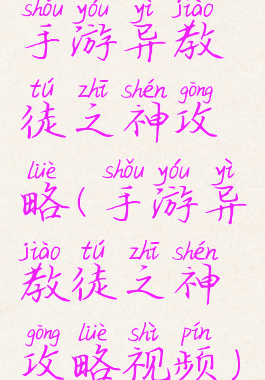 shǒu yóu yì jiào
手游异教
tú zhī shén gōng
徒之神攻
lüè shǒu yóu yì
略(手游异
jiào tú zhī shén
教徒之神
gōng lüè shì pín
攻略视频)